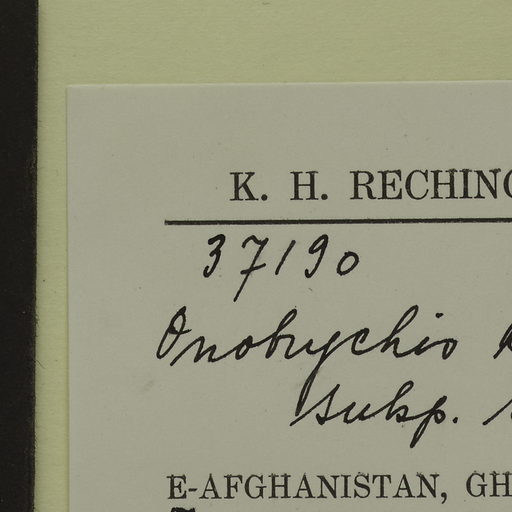 K. H. RECHING
37190
Onobrychis
subsp.
E-AFGHANISTAN, GH